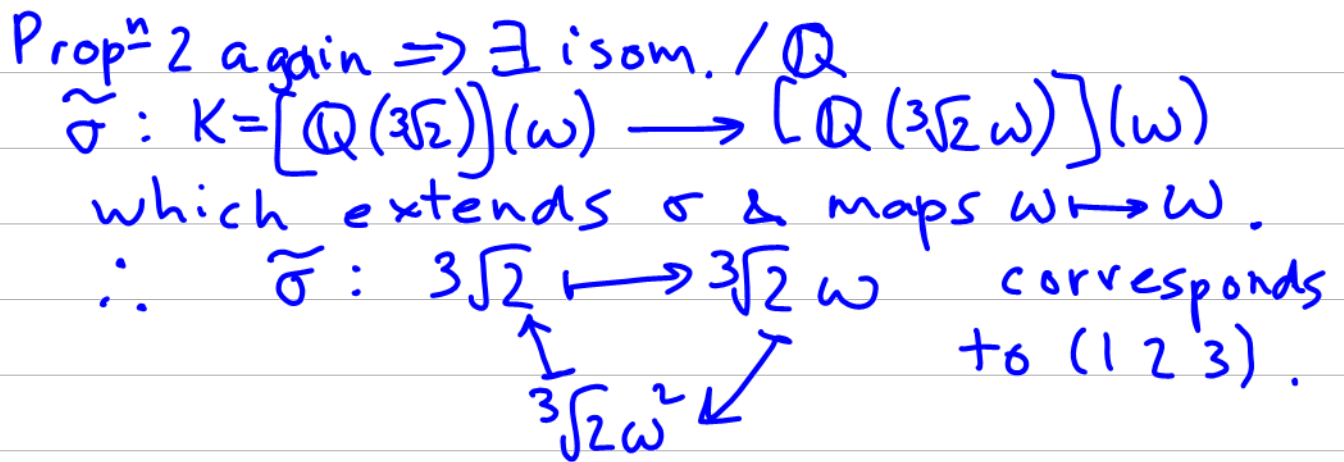 Propⁿ 2 again ⇒ ∃ isom. / ℚ
σ̃ : K = [ℚ(∛2)](ω) ⟶ [ℚ(∛2 ω)](ω)
which extends σ & maps ω ↦ ω.
∴ σ̃ : ∛2 ⟼ ∛2 ω corresponds
to (1 2 3).
∛2 ω²